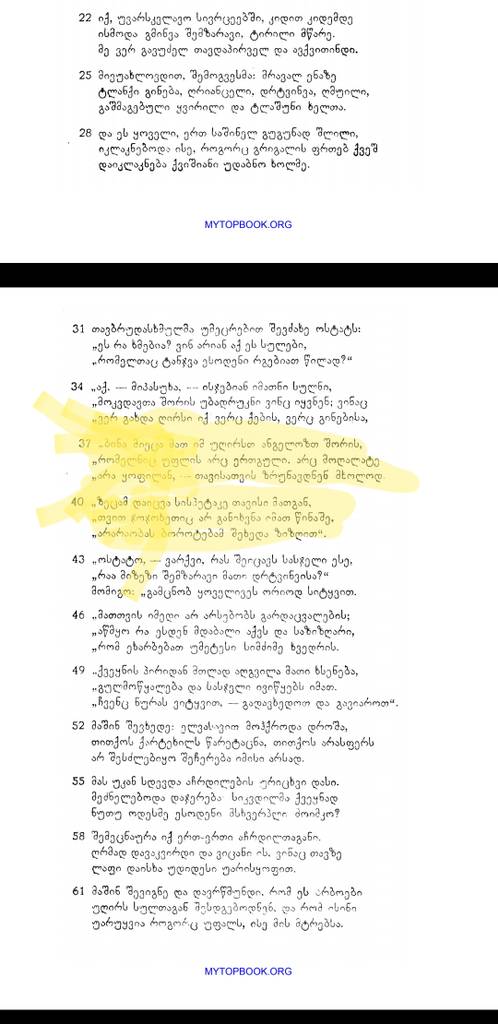 22 იქ, უვარსკვლავო სივრცეებში, კიდით კიდემდე
ისმოდა გმინვა შემზარავი, ტირილი მწარე.
მე ვერ გავუძელ თავდაპირველ და ავქვითინდი.
25 მივუახლოვდით, შემოგვესმა: მრავალ ენაზე
ტლანქი გინება, ღრიანცელი, დრტვინვა, ღმუილი,
გაშმაგებული ყვირილი და ტლაშუნი ხელთა.
28 და ეს ყოველი, ერთ საშინელ გუგუნად შლილი,
იკლაკნებოდა ისე, როგორც გრიგალის ფრთებ ქვეშ
დაიკლაკნება ქვიშიანი უდაბნო ხოლმე.
MYTOPBOOK.ORG
31 თავბრუდასხმულმა უმეცრებით შევძახე ოსტატს:
„ეს რა ხმებია? ვინ არიან აქ ეს სულები,
„რომელთაც ტანჯვა ესოდენი რგებიათ წილად?“
34 „აქ, — მიპასუხა, — ისჯებიან იმათნი სულნი,
„მოკვდავთა შორის უბადრუკნი ვინც იყვნენ; ვინაც
„ვერ გახდა ღირსი იქ ვერც ქების, ვერც გინებისა,
37 „ბინა მიეცა მათ იმ უღირსთ ანგელოზთ შორის,
„რომელნიც უფლის არც ერთგული, არც მოღალატე
„არა ყოფილან, — თავისათვის ზრუნავდნენ მხოლოდ.
40 „ზეცამ დაიცვა სისპეტაკე თავისი მათგან,
„თვით ჯოჯოხეთიც არ განიხვნა იმათ წინაშე,
„არარაობას ბოროტებამ შეხედა ზიზღით“.
43 „ოსტატო, — ვარქვი, რას შეიცავს სასჯელი ესე,
„რაა მიზეზი შემზარავი მათი დრტვინვისა?“
მომიგო: „გამცნობ ყოველივეს ორიოდ სიტყვით.
46 „მათთვის იმედი არ არსებობს გარდაცვალების;
„აწმყო რა ესდენ მდაბალი აქვს და საზიზღარი,
„რომ ეხარბებათ უმეტესი სიმძიმე ხვედრის.
49 „ქვეყნის პირიდან მთლად აღგვილა მათი ხსენება,
„გულმოწყალება და სასჯელი ივიწყებს იმათ.
„ჩვენც ნურას ვიტყვით, — გადავხედოთ და გავიაროთ“.
52 მაშინ შევხედე: ელვასავით მოჰქროდა დროშა,
თითქოს ქარტეხილს წარეტაცნა, თითქოს არასფერს
არ შესძლებიყო შეჩერება იმისი არსად.
55 მას უკან სდევდა აჩრდილების ურიცხვი დასი.
მეძნელებოდა დაჯერება სიკვდილმა ქვეყნად
ნუთუ ოდესმე ესოდენი მსხვერპლი მოიმკო?
58 შემეცნაურა იქ ერთ-ერთი აჩრდილთაგანი.
ღრმად დავაკვირდი და ვიცანი ის, ვინაც თავზე
ლაფი დაისხა უდიდესი უარისყოფით.
61 მაშინ შევიგნე და დავრწმუნდი, რომ ეს ბრბოები
უღირს სულთაგან შესდგებოდნენ, და რომ ისინი
უარუყვია როგორც უფალს, ისე მის მტრებსა.
MYTOPBOOK.ORG